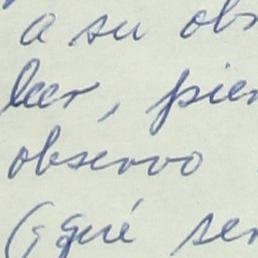 a su obs
leer, pien
observo
(¿qué sen